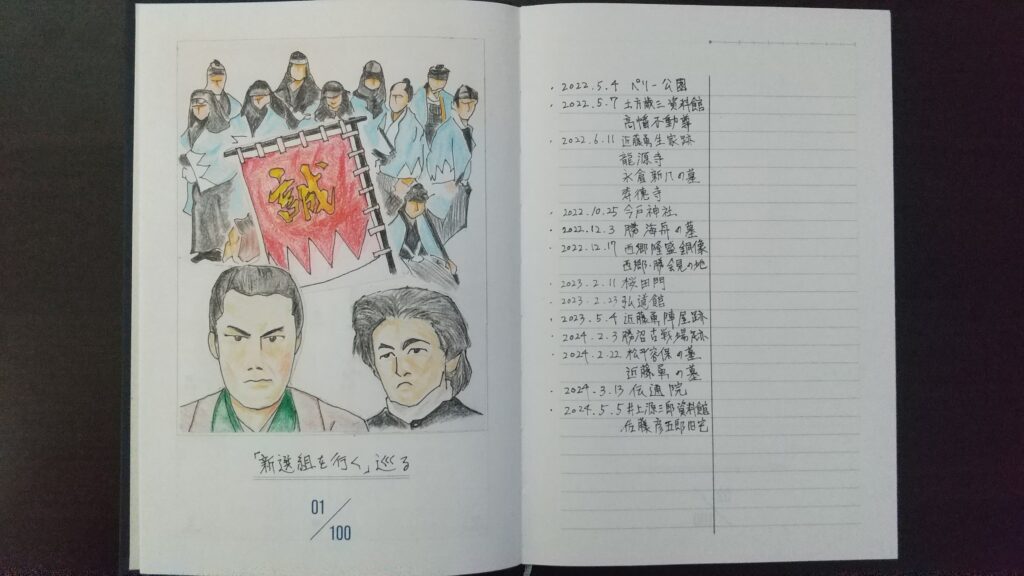 誠
「新選組を行く」巡る
01/100
・2022.5.4 ペリー公園
・2022.5.7 土方歳三資料館
高幡不動尊
・2022.6.11 近藤勇生家跡
龍源寺
永倉新八の墓
寿徳寺
・2022.10.25 今戸神社
・2022.12.3 勝海舟の墓
・2022.12.17 西郷隆盛銅像
西郷・勝会見の地
・2023.2.11 桜田門
・2023.2.23 弘道館
・2023.5.4 近藤勇陣屋跡
・2024.2.3 勝沼古戦場跡
・2024.2.22 松平容保の墓
近藤勇の墓
・2024.3.13 伝通院
・2024.5.5 井上源三郎資料館
佐藤彦五郎旧宅